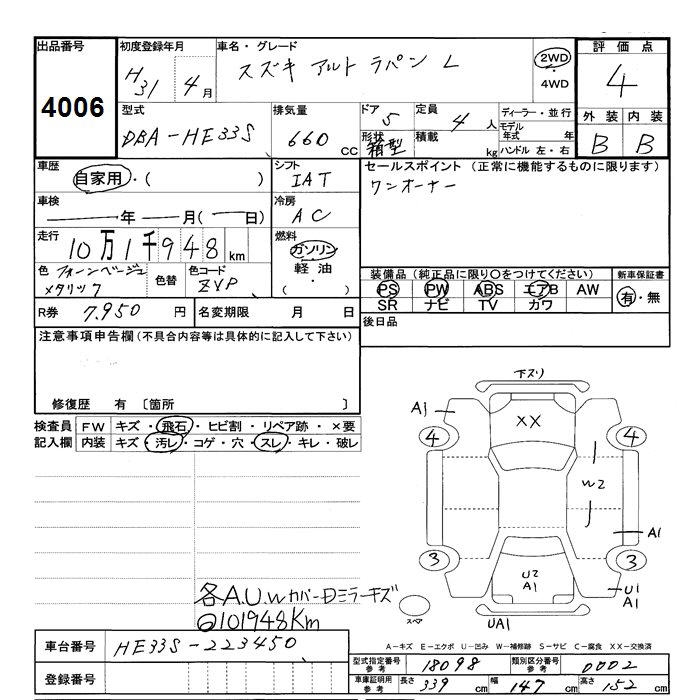 出品番号 初度登録年月 車名・グレード 評価点
4006 H31 4月 スズキ アルト ラパン L 2WD・4WD 4
型式 排気量 ドア 5 定員 4人 ディーラー・並行 外装 内装
DBA-HE33S 660cc 形状 箱型 積載 kg モデル年式 年 ハンドル 左・右 B B
車歴 自家用・( ) シフト IAT セールスポイント (正常に機能するものに限ります)
車検 年 月( 日) 冷房 AC ワンオーナー
走行 10万1千948km 燃料 ガソリン 軽油 ・( )
色 フォーンベージュメタリック 色替 色コード ZVP 装備品(純正品に限り○をつけてください) 新車保証書
PS PW ABS エアB AW 有・無
SR ナビ TV カワ
R券 7,950円 名変期限 月 日 後日品
注意事項申告欄(不具合内容等は具体的に記入して下さい)
修復歴 有 〔箇所 〕
検査員 FW キズ・飛石・ヒビ割・リペア跡・×要
記入欄 内装 キズ・汚レ・コゲ・穴・スレ・キレ・破レ
下スリ
A1
XX
4 4
W2
A1
3 3
U2
A1
U1
A1
スペア
UA1
各A.U.W カバー 日ミラーキズ
101948Km
A-キズ E-エクボ U-凹み W-補修跡 S-サビ C-腐食 XX-交換済
車台番号 HE33S-223450
型式指定番号 参考 18098 類別区分番号 参考 0002
登録番号
車庫証明用 参考 長さ 339cm 幅 147cm 高さ 152cm